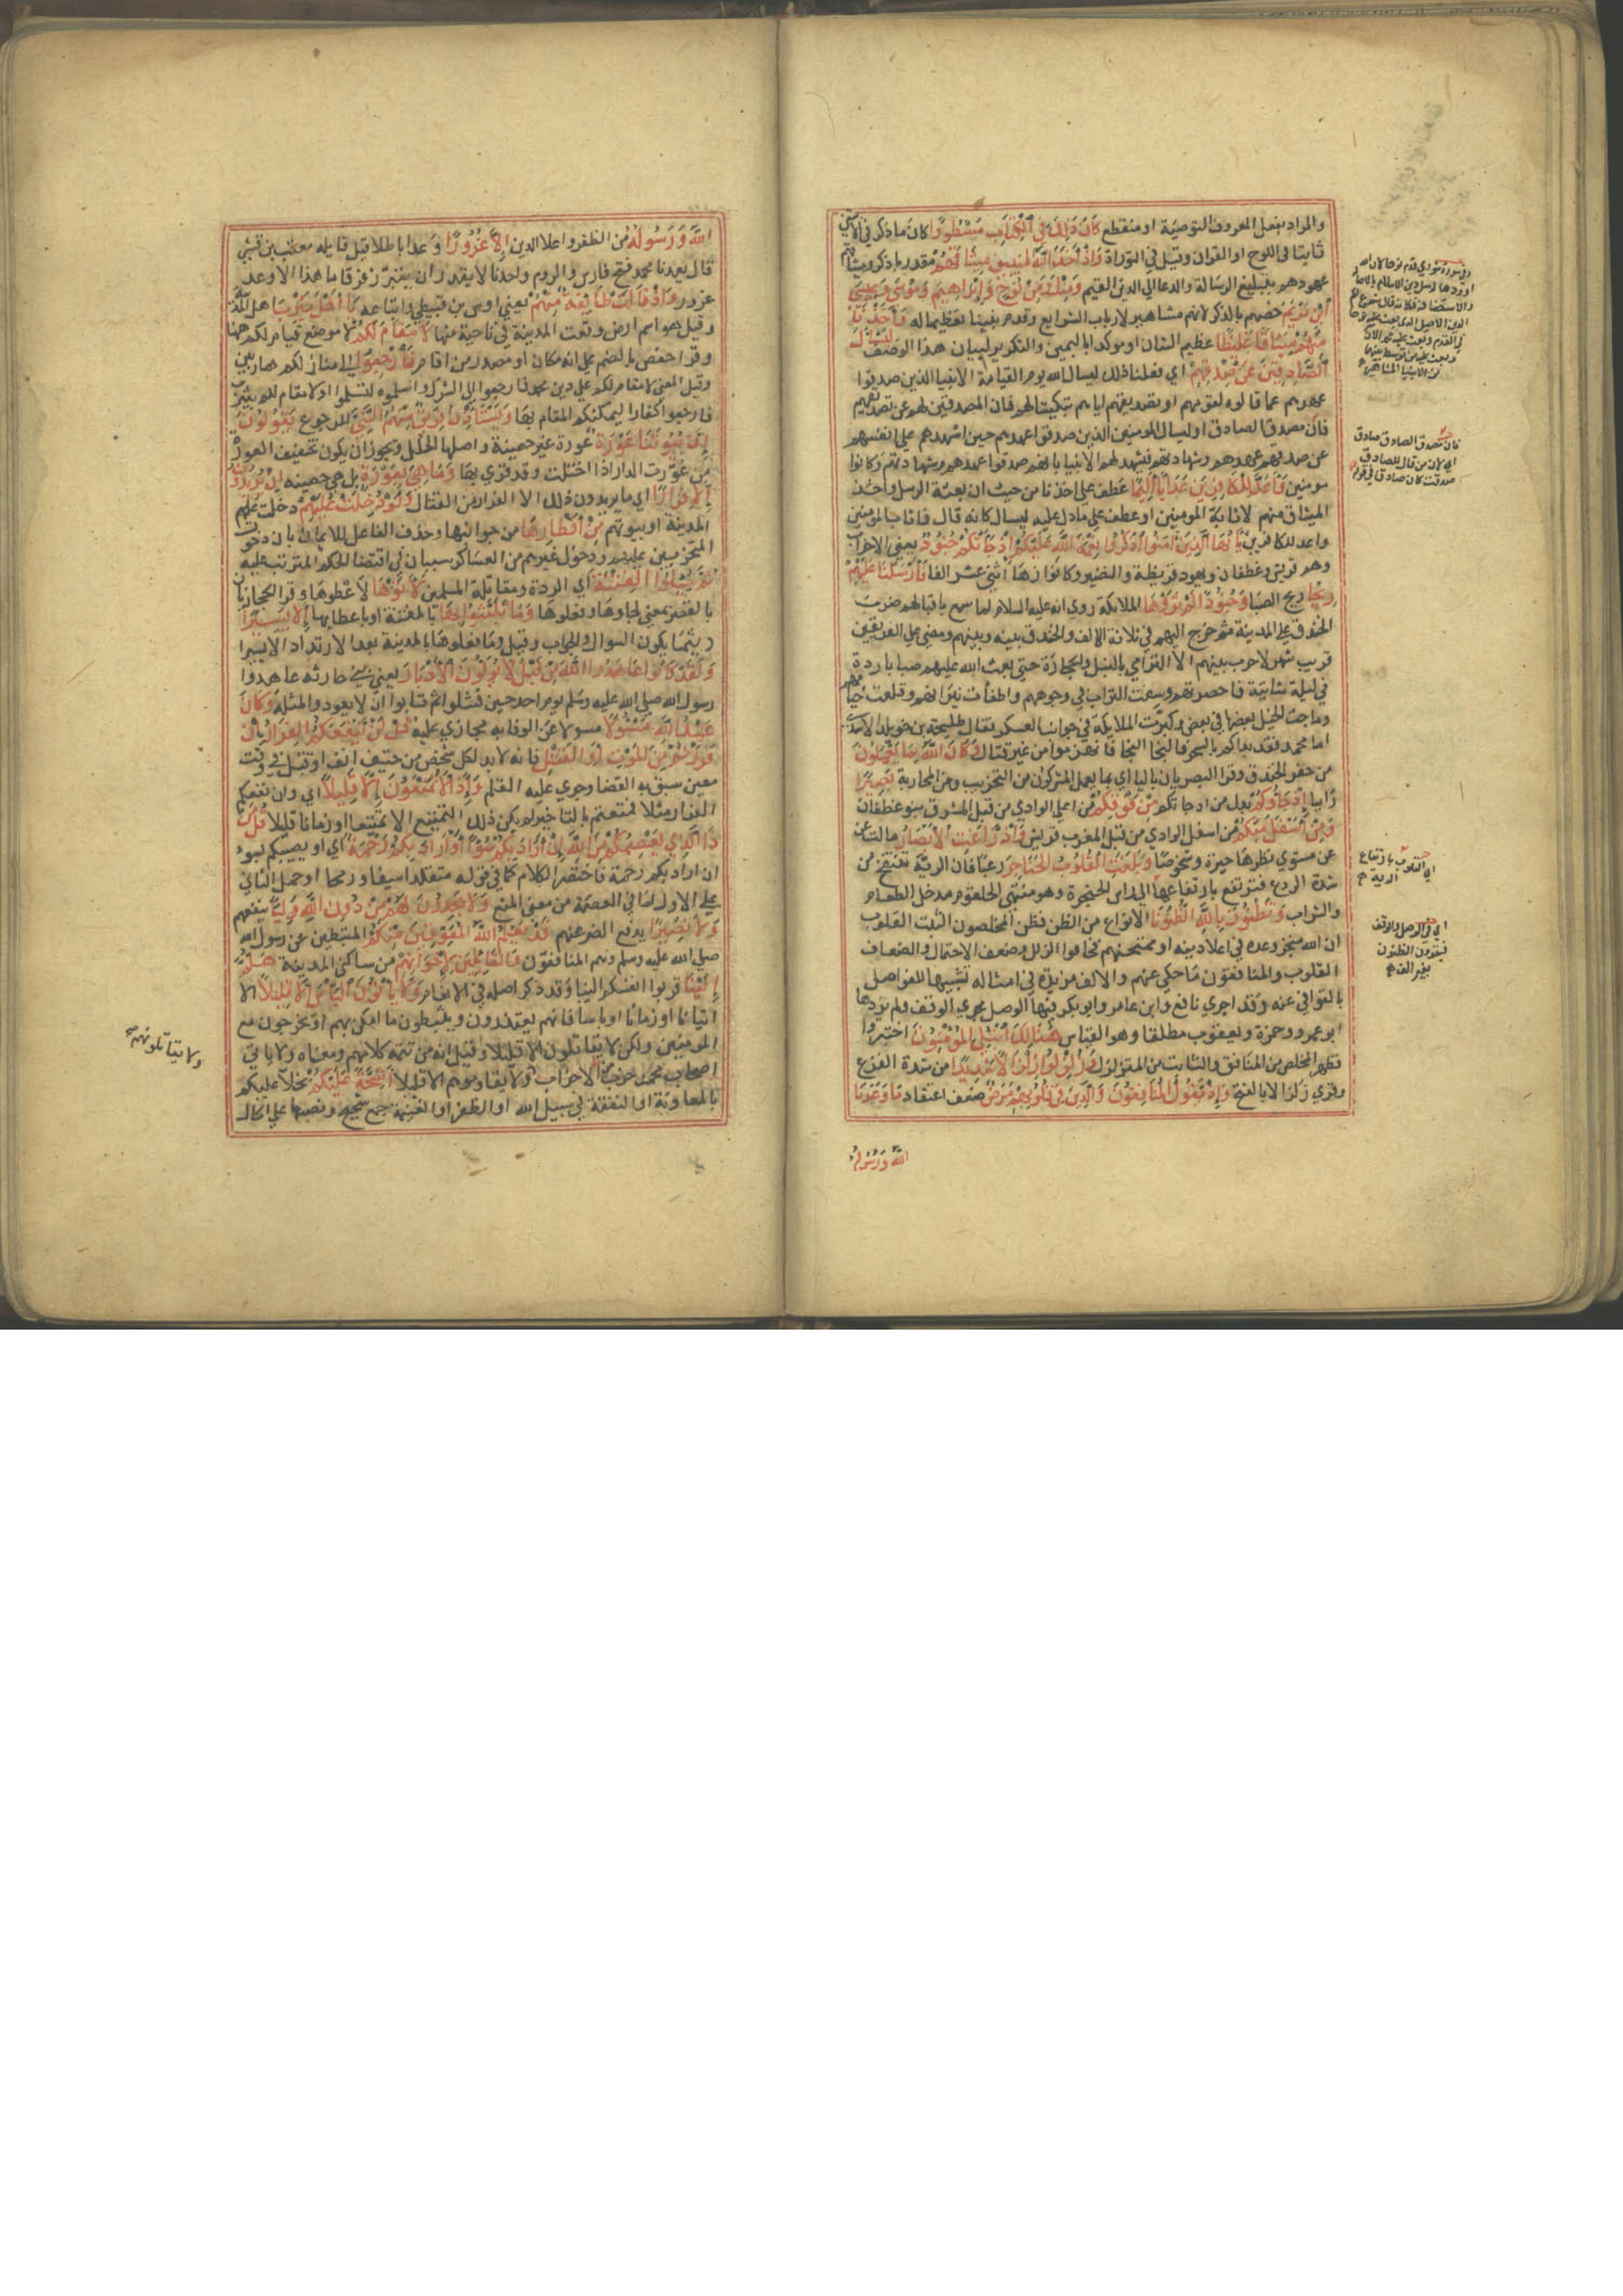 والمراد بفعل المعروف التوصية او منقطع كَانَ ذٰلِكَ فِي الْكِتَابِ مَسْطُورًا كان ما ذكر في الايتين
ثابتا في اللوح او القران وقيل في التوراة وَاِذْ اَخَذْنَا مِنَ النَّبِيّٖنَ مِيثَاقَهُمْ مقدر باذكر وميثاقهم
عهودهم بتبليغ الرسالة والدعا الي الدين القيم وَمِنْكَ وَمِنْ نُوحٍ وَاِبْرَاهِيمَ وَمُوسٰى وَعِيسَى
ابْنِ مَرْيَمَ خصهم بالذكر لانهم مشاهير لارباب الشرايع وقدم نبينا تعظيما له وَاَخَذْنَا
مِنْهُمْ مِيثَاقًا غَلِيظًا عظيم الشان او موكدا باليمين والتكرير لبيان هذا الوصف لِيَسْاَلَ
الصَّادِقِينَ عَنْ صِدْقِهِمْ اي فعلنا ذلك ليسال الله يوم القيامة الانبيا الذين صدقوا
عهدهم عما قالوه لقومهم او تصديقهم اياهم تبكيتا لهم فان المصدقين لهم عن تصديقهم
فان مصدق الصادق او ليسال المومنين الذين صدقوا عهدهم حين اشهدهم علي انفسهم
عن صدقهم عهدهم وشهادتهم فيشهد لهم الانبيا بانهم صدقوا عهدهم وشهادتهم وكانوا
مومنين وَاَعَدَّ لِلْكَافِرِينَ عَذَابًا اَلِيمًا عطف علي اخذنا من حيث ان بعثة الرسل واخذ
الميثاق منهم لاثابة المومنين او عطف علي ما دل عليه ليسال كانه قال فاثاب المومنين
واعد للكافرين يَا اَيُّهَا الَّذِينَ اٰمَنُوا اذْكُرُوا نِعْمَةَ اللّٰهِ عَلَيْكُمْ اِذْ جَاءَتْكُمْ جُنُودٌ يعني الاحزاب
وهم قريش وغطفان ويهود قريظة والنضير وكانوا زها اثني عشر الفا فَاَرْسَلْنَا عَلَيْهِمْ
رِيحًا ريح الصبا وَجُنُودًا لَمْ تَرَوْهَا الملائكة روي انه عليه السلام لما سمع باقبالهم ضرب
الخندق علي المدينة ثم خرج اليهم في ثلاثة الاف والخندق بينه وبينهم ومضي علي الفريقين
قريب شهر لا حرب بينهم الا الترامي بالنبل والحجارة حتي بعث الله عليهم صبا باردة
في ليلة شاتية فاخصرتهم وسفت التراب في وجوههم واطفات نيرانهم وقلعت خيامهم
وماجت الخيل بعضها في بعض وكبرت الملايكة في جوانب العسكر فقال طليحة بن خويلد الاسدي
اما محمد فقد بداكم بالسحر فالنجا النجا فانهزموا من غير قتال وَكَانَ اللّٰهُ بِمَا تَعْمَلُونَ
من حفر الخندق وقرا البصريان باليا اي بما يعمل المشركون من التحزيب ومن المحاربة بَصِيرًا
رايا اِذْ جَاؤُكُمْ بدل من اذ جاتكم مِنْ فَوْقِكُمْ من اعلي الوادي من قبل المشرق بنو غطفان
وَمِنْ اَسْفَلَ مِنْكُمْ من اسفل الوادي من قبل المغرب قريش وَاِذْ زَاغَتِ الْاَبْصَارُ مالت عن
عن مستوي نظرها حيرة وشخوصا وَبَلَغَتِ الْقُلُوبُ الْحَنَاجِرَ رعبا فان الرية تنتفخ من
شدة الروع فترتفع بارتفاعها الي راس الحنجرة وهو منتهي الحلقوم مدخل الطعام
والشراب وَتَظُنُّونَ بِاللّٰهِ الظُّنُونَا الانواع من الظن فظن المخلصون الثبت القلوب
ان الله منجز وعده في اعلا دينه او ممتحنهم فخافوا الزلل وضعف الاحتمال والضعاف
القلوب والمنافقون ما حكي عنهم والالف مزيدة في امثاله تشبيها للفواصل
بالقوافي عنه وقد اجري نافع وابن عامر وابو بكر فيها الوصل مجري الوقف ولم يزدها
ابو عمرو وحمزة ويعقوب مطلقا وهو القياس هُنَالِكَ ابْتُلِيَ الْمُؤْمِنُونَ اختبروا
فظهر المخلص من المنافق والثابت من المتزلزل وَزُلْزِلُوا زِلْزَالًا شَدِيدًا من شدة الفزع
وقري زلزالا بالفتح وَاِذْ يَقُولُ الْمُنَافِقُونَ وَالَّذِينَ فِي قُلُوبِهِمْ مَرَضٌ ضعف اعتقاد مَا وَعَدَنَا
اللّٰهُ وَرَسُولُهُ
فان مصدق الصادق صادق
اي لان من قال للصادق
صدقت كان صادقا في قوله
اي القلوب بارتفاع
الرية
اي في الوصل والوقف
فيقرون الظنون
بغير الف
اللّٰهُ وَرَسُولُهُ من الظفر واعلا الدين اِلَّا غُرُورًا وعدا باطلا قيل قايله معتب بن قشير
قال يعدنا محمد فتح فارس والروم واحدنا لا يقدر ان يتبرز فرقا ما هذا الا وعد
غرور وَاِذْ قَالَتْ طَائِفَةٌ مِنْهُمْ يعني اوس بن قيظي واتباعه يَا اَهْلَ يَثْرِبَ اهل المدينة
وقيل هو اسم ارض وقعت المدينة في ناحية منها لَا مُقَامَ لَكُمْ لا موضع قيام لكم ههنا
وقرا حفص بالضم علي انه مكان او مصدر من اقام فَارْجِعُوا الي منازلكم هاربين
وقيل المعني لا مقام لكم علي دين محمد فارجعوا الي الشرك واسلموه لتسلموا او لا مقام لكم بيثرب
فارجعوا كفارا ليمكنكم المقام بها وَيَسْتَاْذِنُ فَرِيقٌ مِنْهُمُ النَّبِيَّ للرجوع يَقُولُونَ
اِنَّ بُيُوتَنَا عَوْرَةٌ عورة غير حصينة واصلها الخلل ويجوز ان يكون تخفيف العورة
من عورت الدار اذا اختلت وقد قري بها وَمَا هِيَ بِعَوْرَةٍ بل هي حصينة اِنْ يُرِيدُونَ
اِلَّا فِرَارًا اي ما يريدون ذلك الا الفرار من القتال وَلَوْ دُخِلَتْ عَلَيْهِمْ دخلت عليهم
المدينة او بيوتهم مِنْ اَقْطَارِهَا من جوانبها وحذف الفاعل للايماء بان دخول
المتحزبين عليهم ودخول غيرهم من العساكر سيان في اقتضا الحكم المترتب عليه
ثُمَّ سُئِلُوا الْفِتْنَةَ اي الردة ومقاتلة المسلمين لَاٰتَوْهَا لاعطوها وقرا الحجازيان
بالقصر بمعني لجاوها وفعلوها وَمَا تَلَبَّثُوا بِهَا بالفتنة او باعطايها اِلَّا يَسِيرًا
ريثما يكون السوال والجواب وقيل وما فعلوها بالمدينة بعد الارتداد الا يسيرا
وَلَقَدْ كَانُوا عَاهَدُوا اللّٰهَ مِنْ قَبْلُ لَا يُوَلُّونَ الْاَدْبَارَ يعني بني حارثه عاهدوا
رسول الله صلي الله عليه وسلم يوم احد حين فشلوا ثم تابوا ان لا يعودوا لمثله وَكَانَ
عَهْدُ اللّٰهِ مَسْئُولًا مسولا عن الوفا به مجازي عليه قُلْ لَنْ يَنْفَعَكُمُ الْفِرَارُ اِنْ
فَرَرْتُمْ مِنَ الْمَوْتِ اَوِ الْقَتْلِ فانه لا بد لكل شخص من حتف انف او قتل في وقت
معين سبق به القضا وجري عليه القلم وَاِذًا لَا تُمَتَّعُونَ اِلَّا قَلِيلًا اي وان نفعكم
الفرار مثلا فمتعتم بالتاخير لم يكن ذلك التمتيع الا تمتيعا او زمانا قليلا قُلْ مَنْ
ذَا الَّذِي يَعْصِمُكُمْ مِنَ اللّٰهِ اِنْ اَرَادَ بِكُمْ سُوءًا اَوْ اَرَادَ بِكُمْ رَحْمَةً اي او يصيبكم بسوء
ان اراد بكم رحمة فاختصر الكلام كما في قوله متقلدا سيفا ورمحا او حمل الثاني
علي الاول لما في العصمة من معني المنع وَلَا يَجِدُونَ لَهُمْ مِنْ دُونِ اللّٰهِ وَلِيًّا ينفعهم
وَلَا نَصِيرًا يدفع الضر عنهم قَدْ يَعْلَمُ اللّٰهُ الْمُعَوِّقِينَ مِنْكُمْ المثبطين عن رسول الله
صلي الله عليه وسلم وهم المنافقون وَالْقَائِلِينَ لِاِخْوَانِهِمْ من ساكني المدينة هَلُمَّ
اِلَيْنَا قربوا انفسكم الينا وقد ذكر اصله في الانعام وَلَا يَاْتُونَ الْبَاْسَ اِلَّا قَلِيلًا الا
اتيانا او زمانا او باسا فانهم يعتذرون ويثبطون ما امكن بهم او يخرجون مع
المومنين ولكن لا يقاتلون الا قليلا وقيل انه من تتمة كلامهم ومعناه ولا ياتي
اصحاب محمد حرب الاحزاب ولا يقاومونهم الا قليلا اَشِحَّةً عَلَيْكُمْ بخلا عليكم
بالمعاونة او النفقة في سبيل الله او الظفر او الغنيمة جمع شحيح ونصبها علي الحال
ولا يقاتلونهم